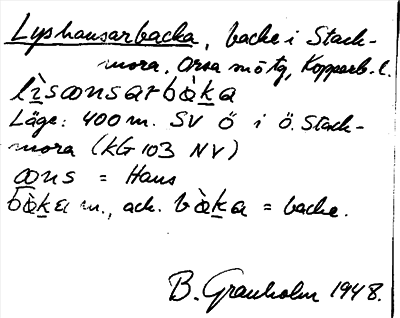 Lyshansarbacka, backe i Stack-
mora, Orsa mötg, Kopparb. l.
lìsaƞnsarbàka
Läge: 400 m. SV Ö i Ö. Stack-
mora (KG 103 NV)
= Hans
bàka m., ack. bàka = backe.
B. Granholm 1948.